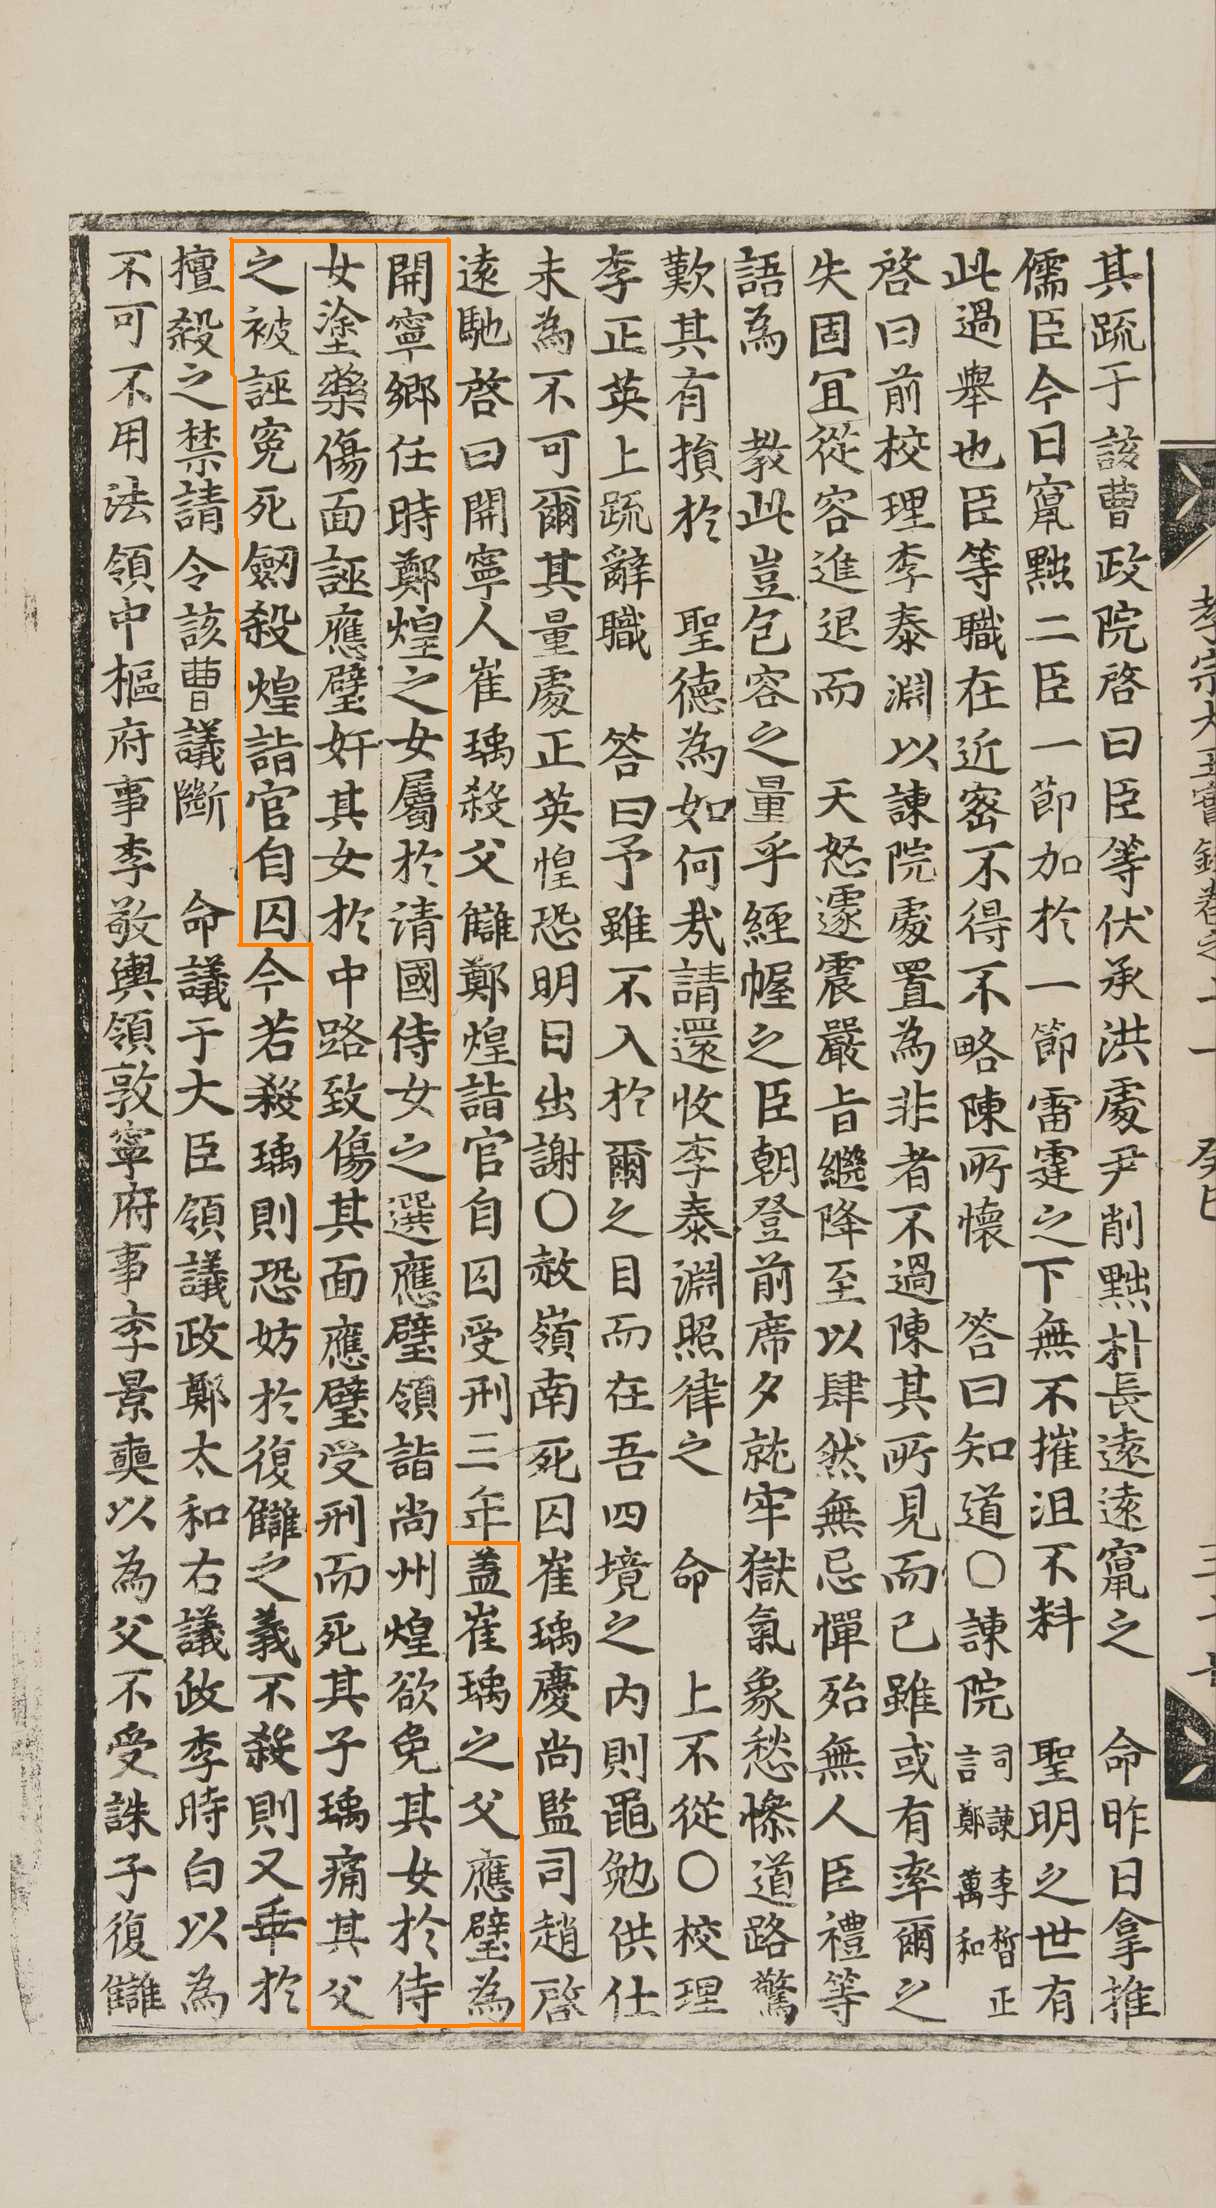 其疏于該曹政院啓曰臣等伏承洪處尹削黜朴長遠遠竄之 命昨日拿推
儒臣今日竄黜二臣一節加於一節雷霆之下無不摧沮不料 聖明之世有
此過擧也臣等職在近密不得不略陳所懷 答曰知道○諫院司諫李晳正言鄭萬和
啓曰前校理李泰淵以諫院處置為非者不過陳其所見而已雖或有率爾之
失固宜從容進退而 天怒遽震嚴旨繼降至以肆然無忌憚殆無人臣禮等
語為 敎此豈包容之量乎經幄之臣朝登前席夕就牢獄氣象愁慘道路驚
歎其有損於 聖德為如何哉請還收李泰淵照律之 命 上不從○校理
李正英上疏辭職 答曰予雖不入於爾之目而在吾四境之內則黽勉供仕
未為不可爾其量處正英惶恐明日出謝○赦嶺南死囚崔瑀慶尙監司趙啓
遠馳啓曰開寧人崔瑀殺父讎鄭煌詣官自囚受刑三年蓋崔瑀之父應璧為
開寧鄕任時鄭煌之女屬於淸國侍女之選應璧領詣尙州煌欲免其女於侍
女塗藥傷面誣應璧奸其女於中路致傷其面應璧受刑而死其子瑀痛其父
之被誣冤死劒殺煌詣官自囚今若殺瑀則恐妨於復讎之義不殺則又乖於
擅殺之禁請令該曹議斷 命議于大臣領議政鄭太和右議政李時白以為
不可不用法領中樞府事李敬輿領敦寧府事李景奭以為父不受誅子復讎